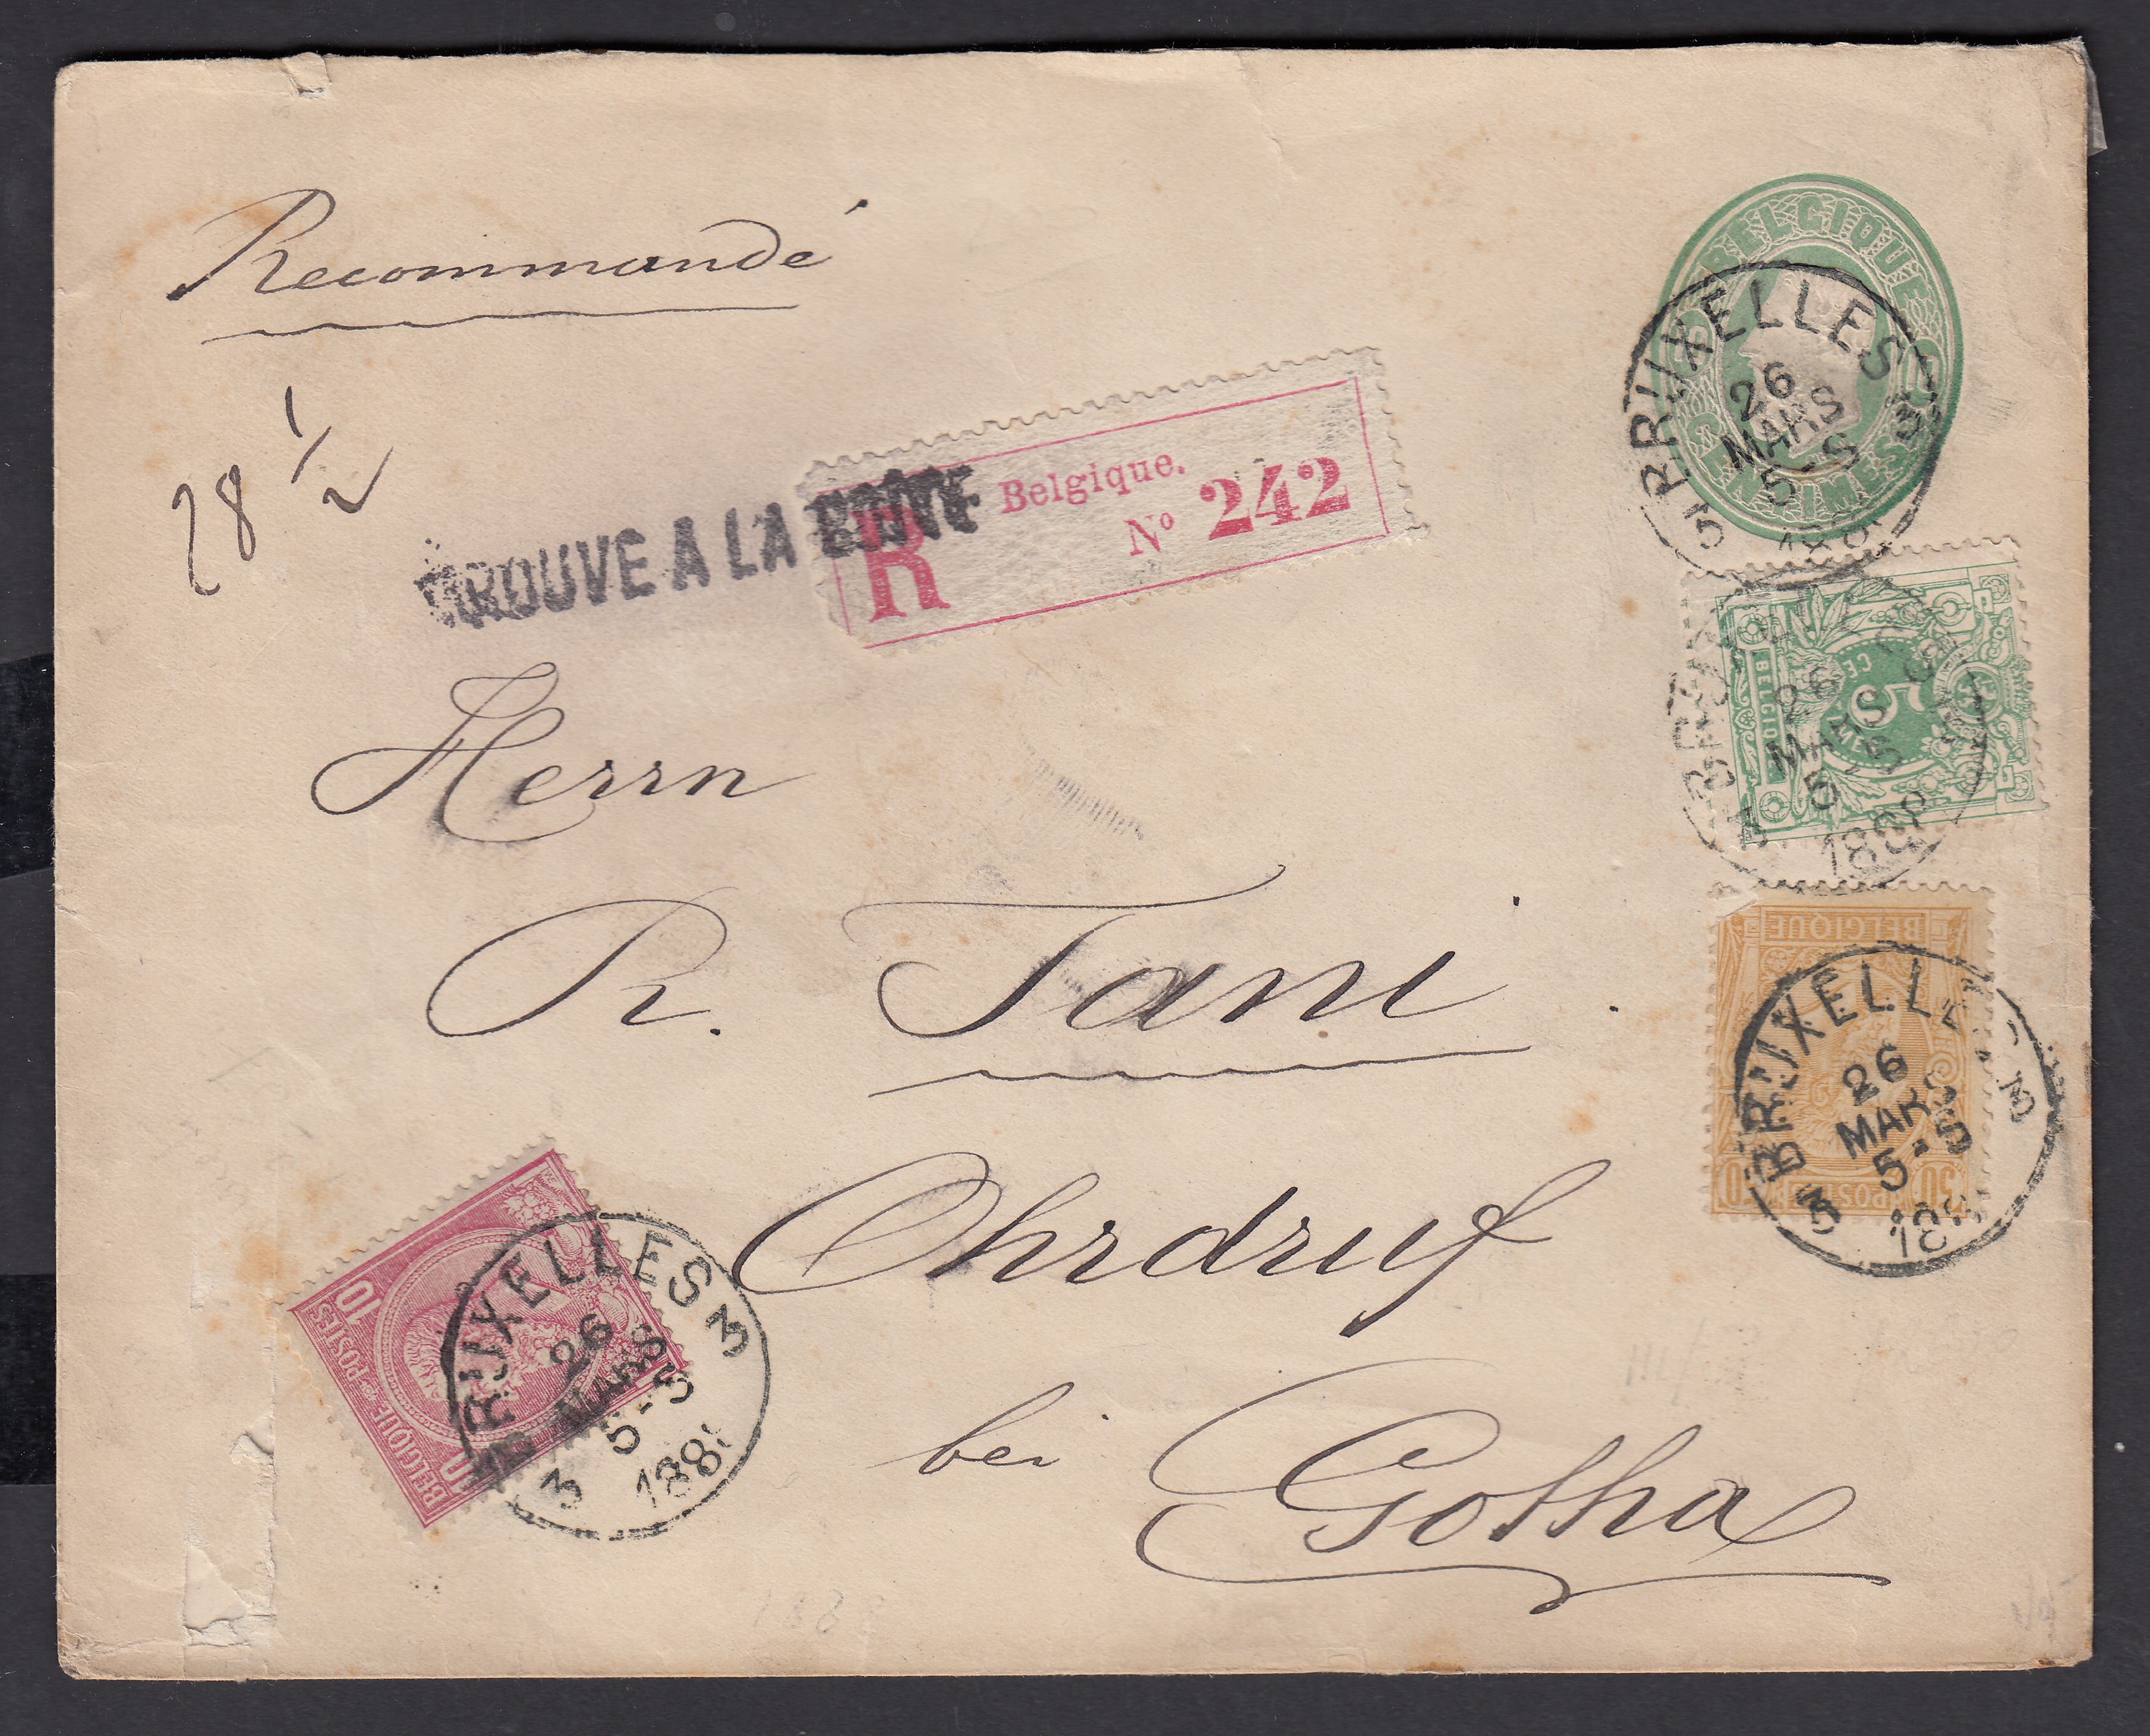 Recommandé
28 1/2
TROUVE A LA BOITE
R Belgique.
No 242
BELGIQUE
BRUXELLES 3
26
MARS
5-S
188
5 CES
BELGIQUE
BRUXELLES
26
MARS
5-S
188
BELGIQUE
POSTES
BRUXELLES 3
26
MARS
5-5
3
Herrn
R. Tani
Ohrdruf
bei Gotha
10 10
BELGIQUE POSTES
BRUXELLES 3
26
MARS
5-5
3 188
1888